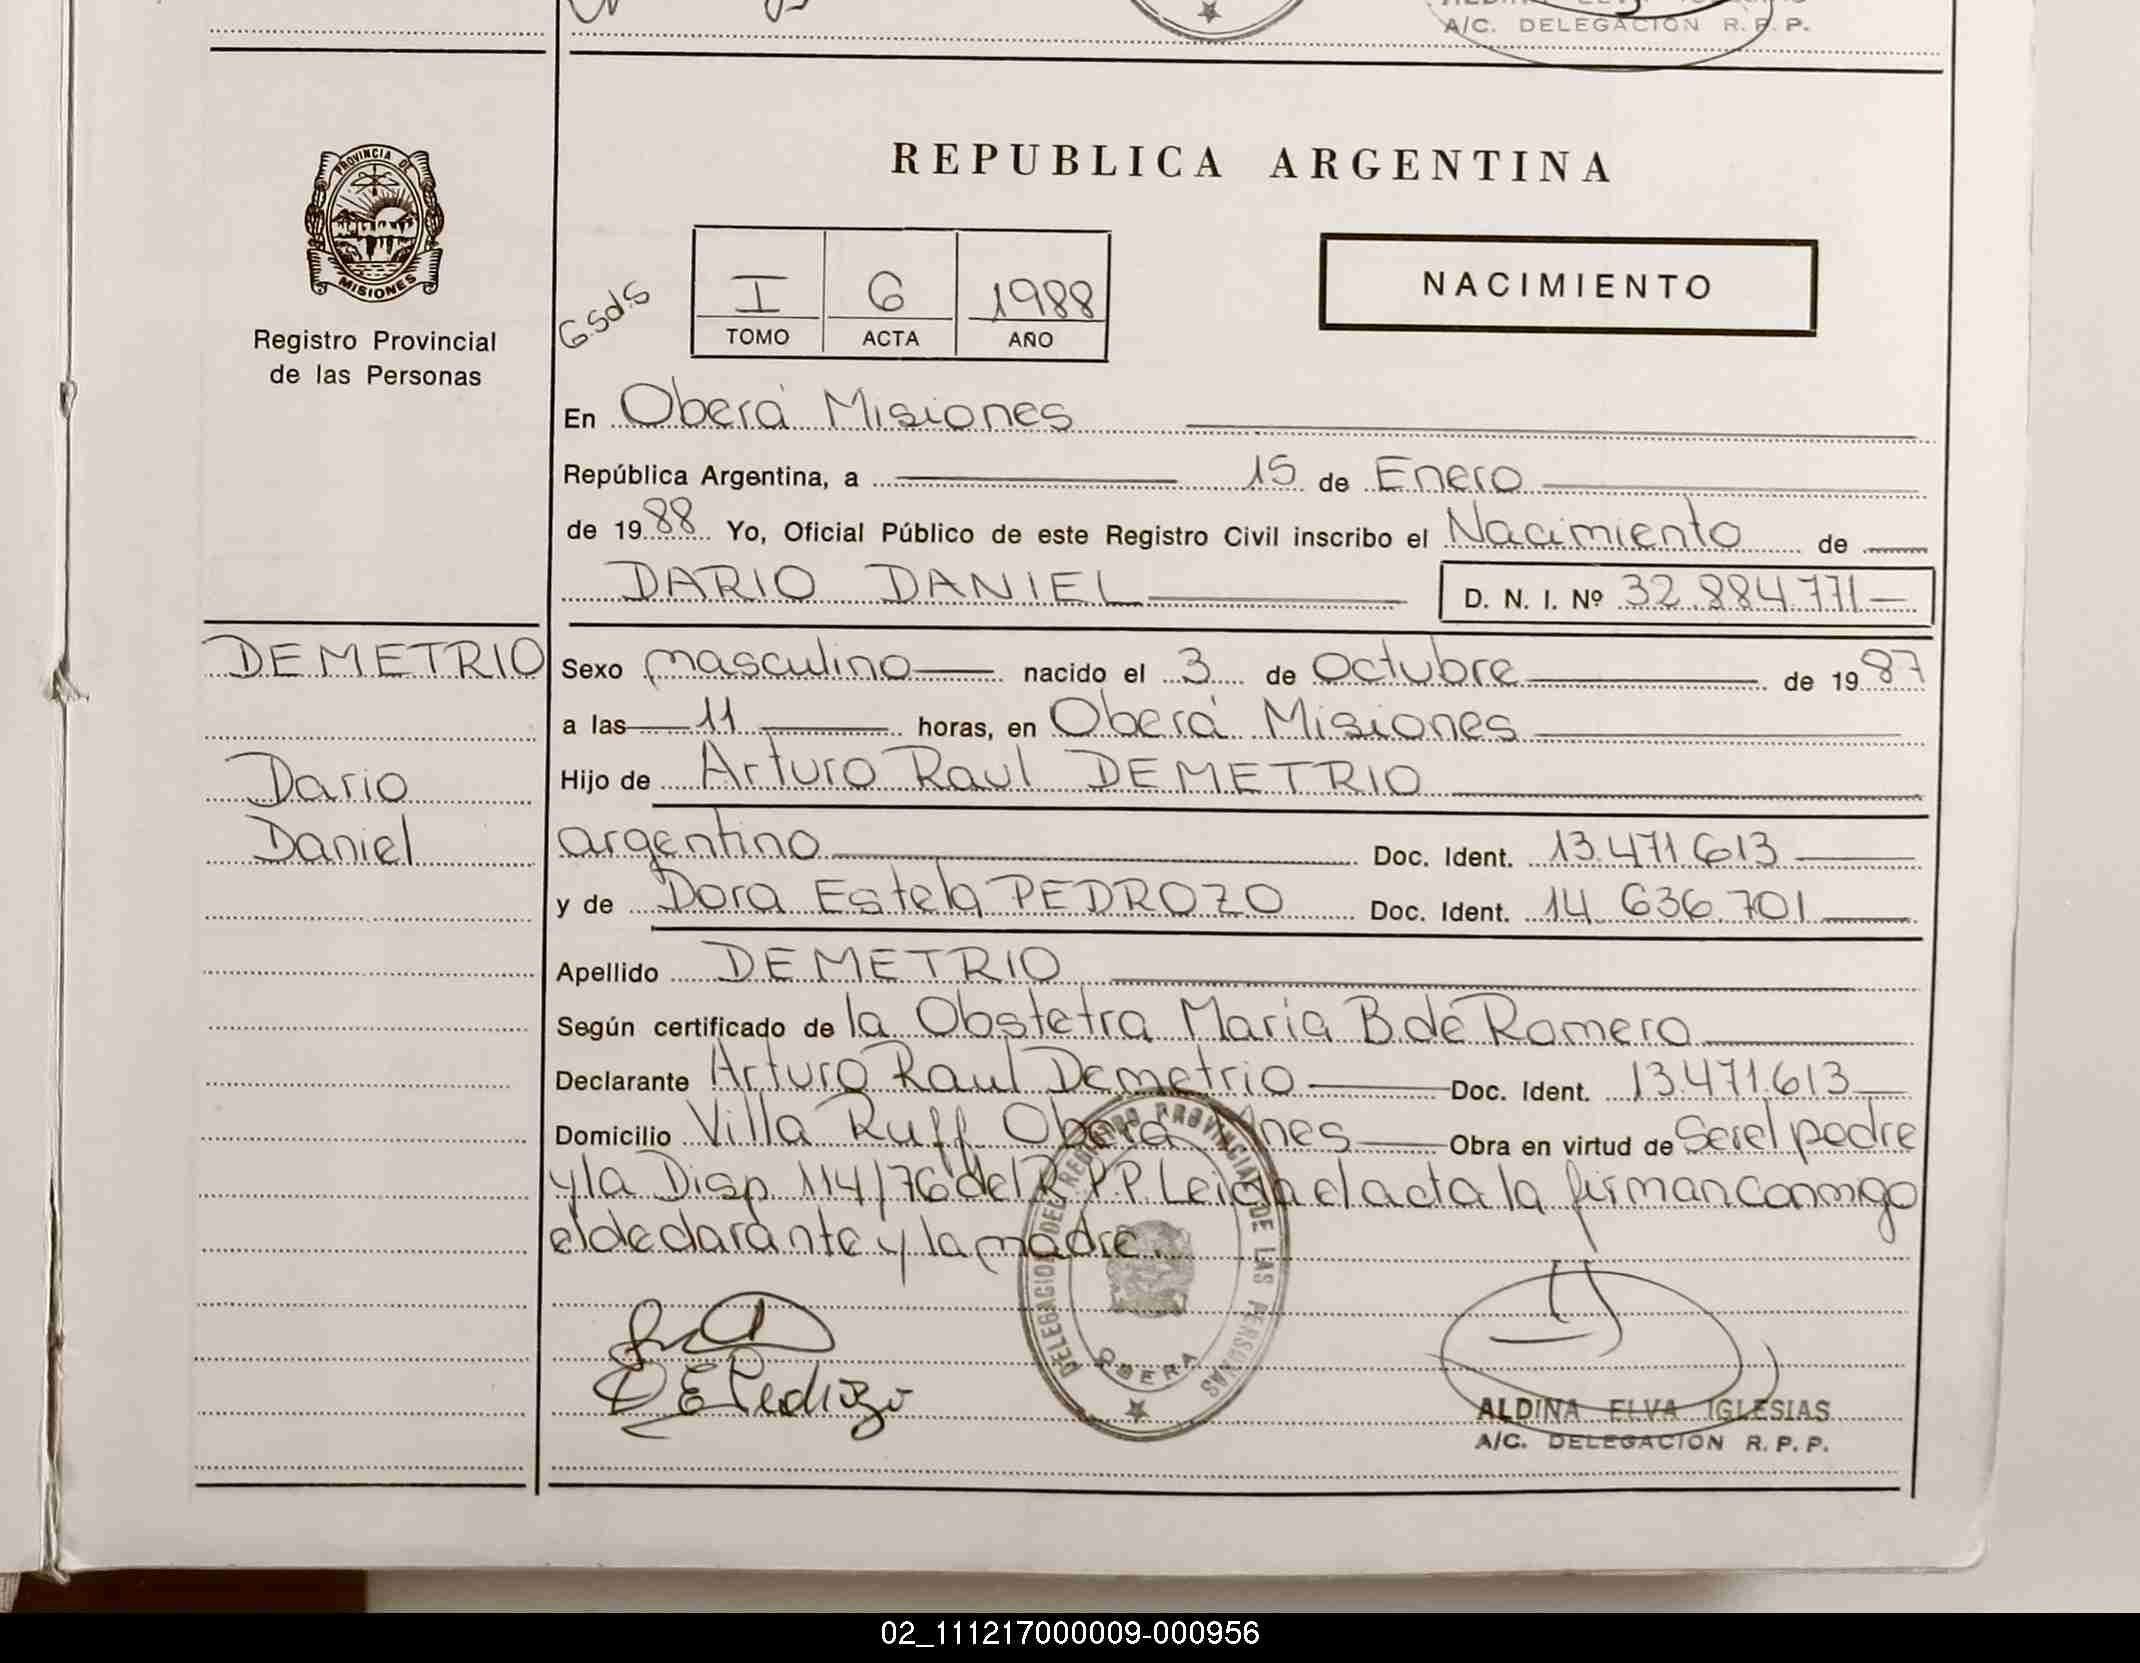 A/C. DELEGACION R.P.P.
PROVINCIA DE
MISIONES
Registro Provincial
de las Personas
REPUBLICA ARGENTINA
NACIMIENTO
G.sd.s
I 6 1988
TOMO ACTA AÑO
En Oberá Misiones
República Argentina, a 15 de Enero
de 1988 Yo, Oficial Público de este Registro Civil inscribo el Nacimiento de
DARIO DANIEL D. N. I. Nº 32.884.771
DEMETRIO
Dario
Daniel
Sexo masculino nacido el 3 de Octubre de 1987
a las 11 horas, en Oberá Misiones
Hijo de Arturo Raul DEMETRIO
argentino Doc. Ident. 13.471.613
y de Dora Estela PEDROZO Doc. Ident. 14.636.701
Apellido DEMETRIO
Según certificado de la Obstetra Maria B. de Romero
Declarante Arturo Raul Demetrio Doc. Ident. 13.471.613
Domicilio Villa Ruff Oberá Mnes Obra en virtud de Ser el padre
y la Disp. 114/76 del R.P.P. Leida el acta la firman conmigo
el declarante y la madre.
DELEGACION DEL REGISTRO PROVINCIAL DE LAS PERSONAS
OBERA
D E Pedrozo
ALDINA ELVA IGLESIAS
A/C. DELEGACION R.P.P.
02_111217000009-000956